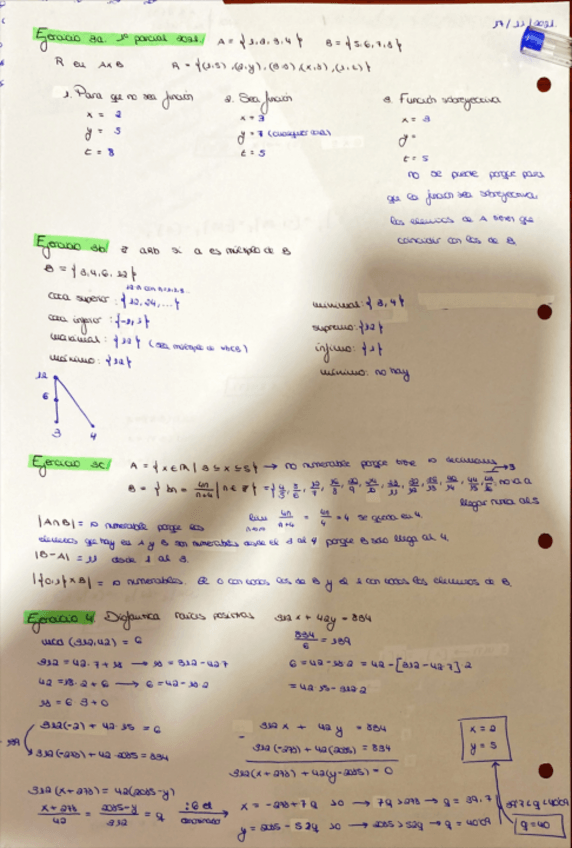 17/11/2021
Ejercicio 3a. 1º parcial 2021. A = {1,2,3,4} B = {5,6,7,8}
R en AxB R = {(1,5),(2,y),(3,8),(x,8),(1,t)}
1. Para que no sea función
x = 2
y = 5
t = 8
2. Sea función
x = 3
y = 7 (cualquier otra)
t = 5
3. Función sobreyectiva
x = 3
y =
t = 5
no se puede porque para
que la función sea sobreyectiva
los elementos de A tienen que
coincidir con los de B
Ejercicio 3b. aRb si a es múltiplo de B
B = {3,4,6,12}
cota superior: {12,24,...}
cota inferior: {-1,1}
maximal: {12}
máximo: {12}
minimal: {3,4}
supremo: {12}
ínfimo: {1}
mínimo: no hay
12
6
3 4
Ejercicio 3c. A = {x∈ℝ | 3≤x≤5} → no numerable porque tiene decimales
B = {bn = 4n/n+4 | n∈
llegar nunca al 5
|A∩B| = numerable porque los
lim 4n/n+4 = 4n/n = 4 se queda en 4.
elementos que hay en A y B son numerables desde el 3 al 4 porque B solo llega al 4.
|B-A| = 11 desde 1 al 3.
|{0,1}xB| = numerables. El 0 con todos los de B y el 1 con todos los elementos de B.
Ejercicio 4. Diofántica raíces positivas 312x + 42y = 834
mcd (312,42) = 6
834/6 = 139
312 = 42·7 + 18 → 18 = 312-42·7
6 = 42-18·2 = 42-[312-42·7]2
42 = 18·2 + 6 → 6 = 42-18·2
= 42·15-312·2
18 = 6·3+0
312(-2) + 42·15 = 6
·139
312(-278) + 42·2085 = 834
312x + 42y = 834
312(-278) + 42(2085) = 834
312(x+278) + 42(y-2085) = 0
x = 2
y = 5
312(x+278) = 42(2085-y)
x+278/42 = 2085-y/312 = q
x = -278+7q >0 → 7q>278 → q = 39,7
y = 2085-52q >0 → 2085>52q → q = 40,09
39,7<q<40,09
q = 40